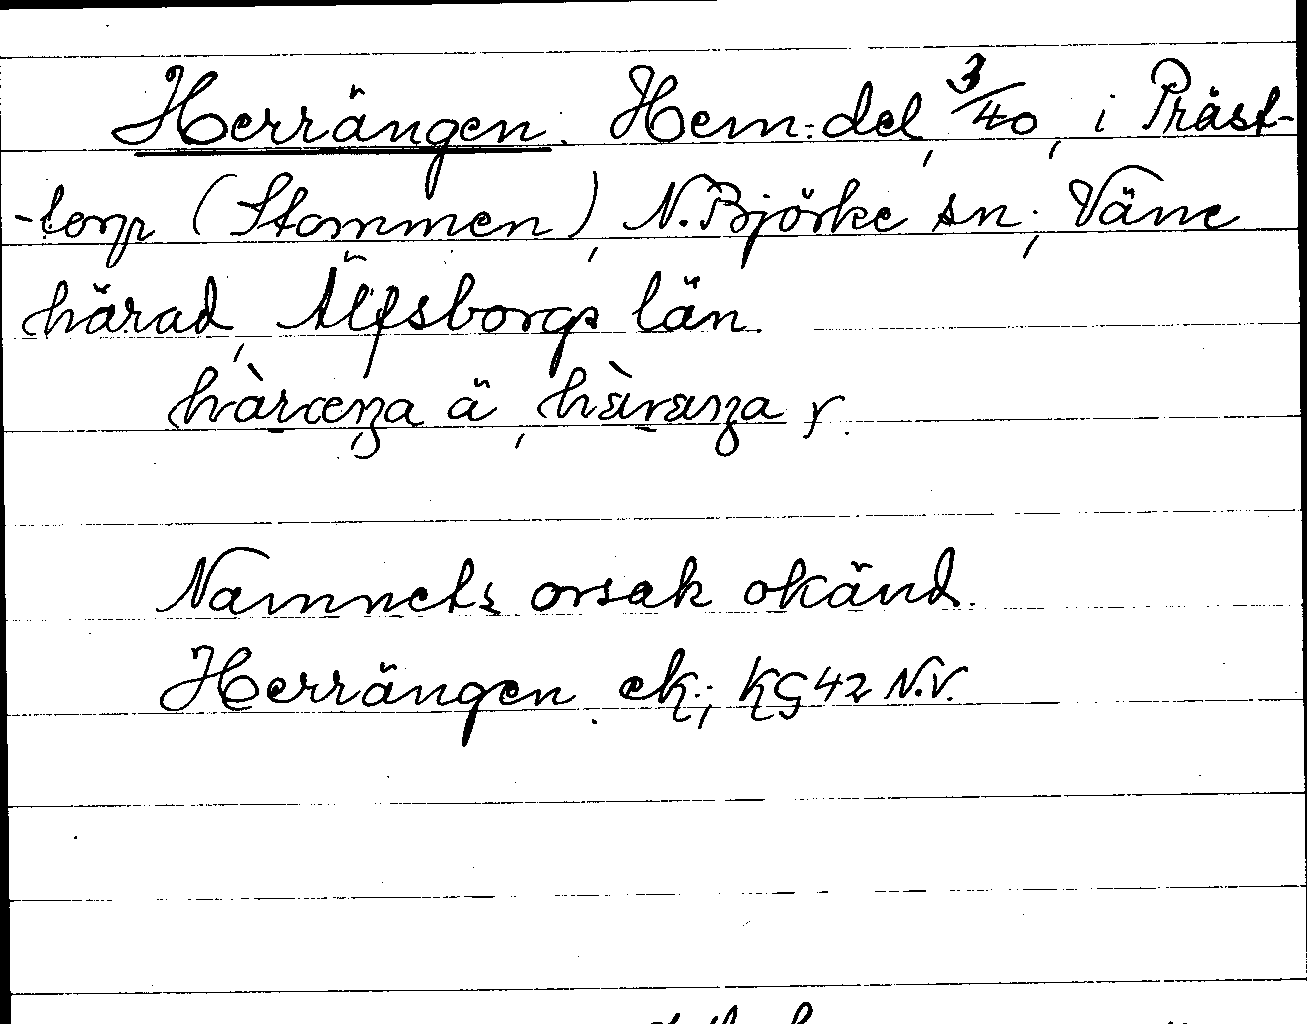 Herrängen. Hem:del, 3/40, i Präst-
-torp (Stommen), N. Björke sn; Väne
härad, Älfsborgs län.
hàræŋa ä, hàraŋa y.
Namnets orsak okänd.
Herrängen ek; KG 42 N.V.